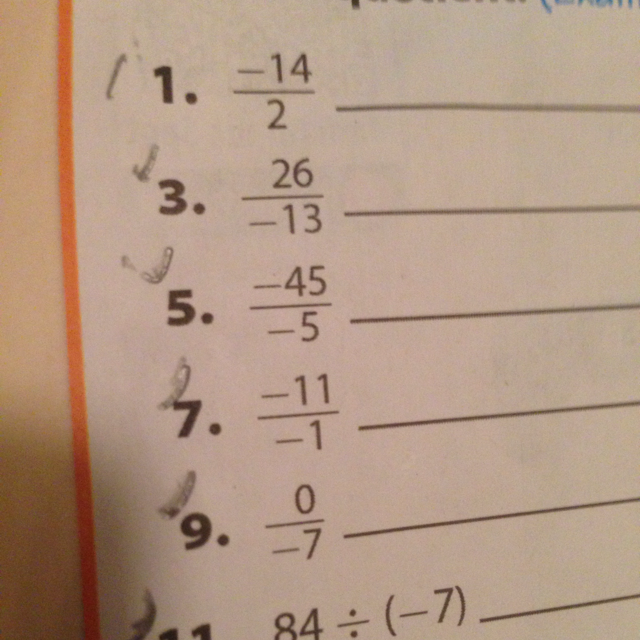 1. -14/2
3. 26/-13
5. -45/-5
7. -11/-1
9. 0/-7
11. 84 ÷ (-7)